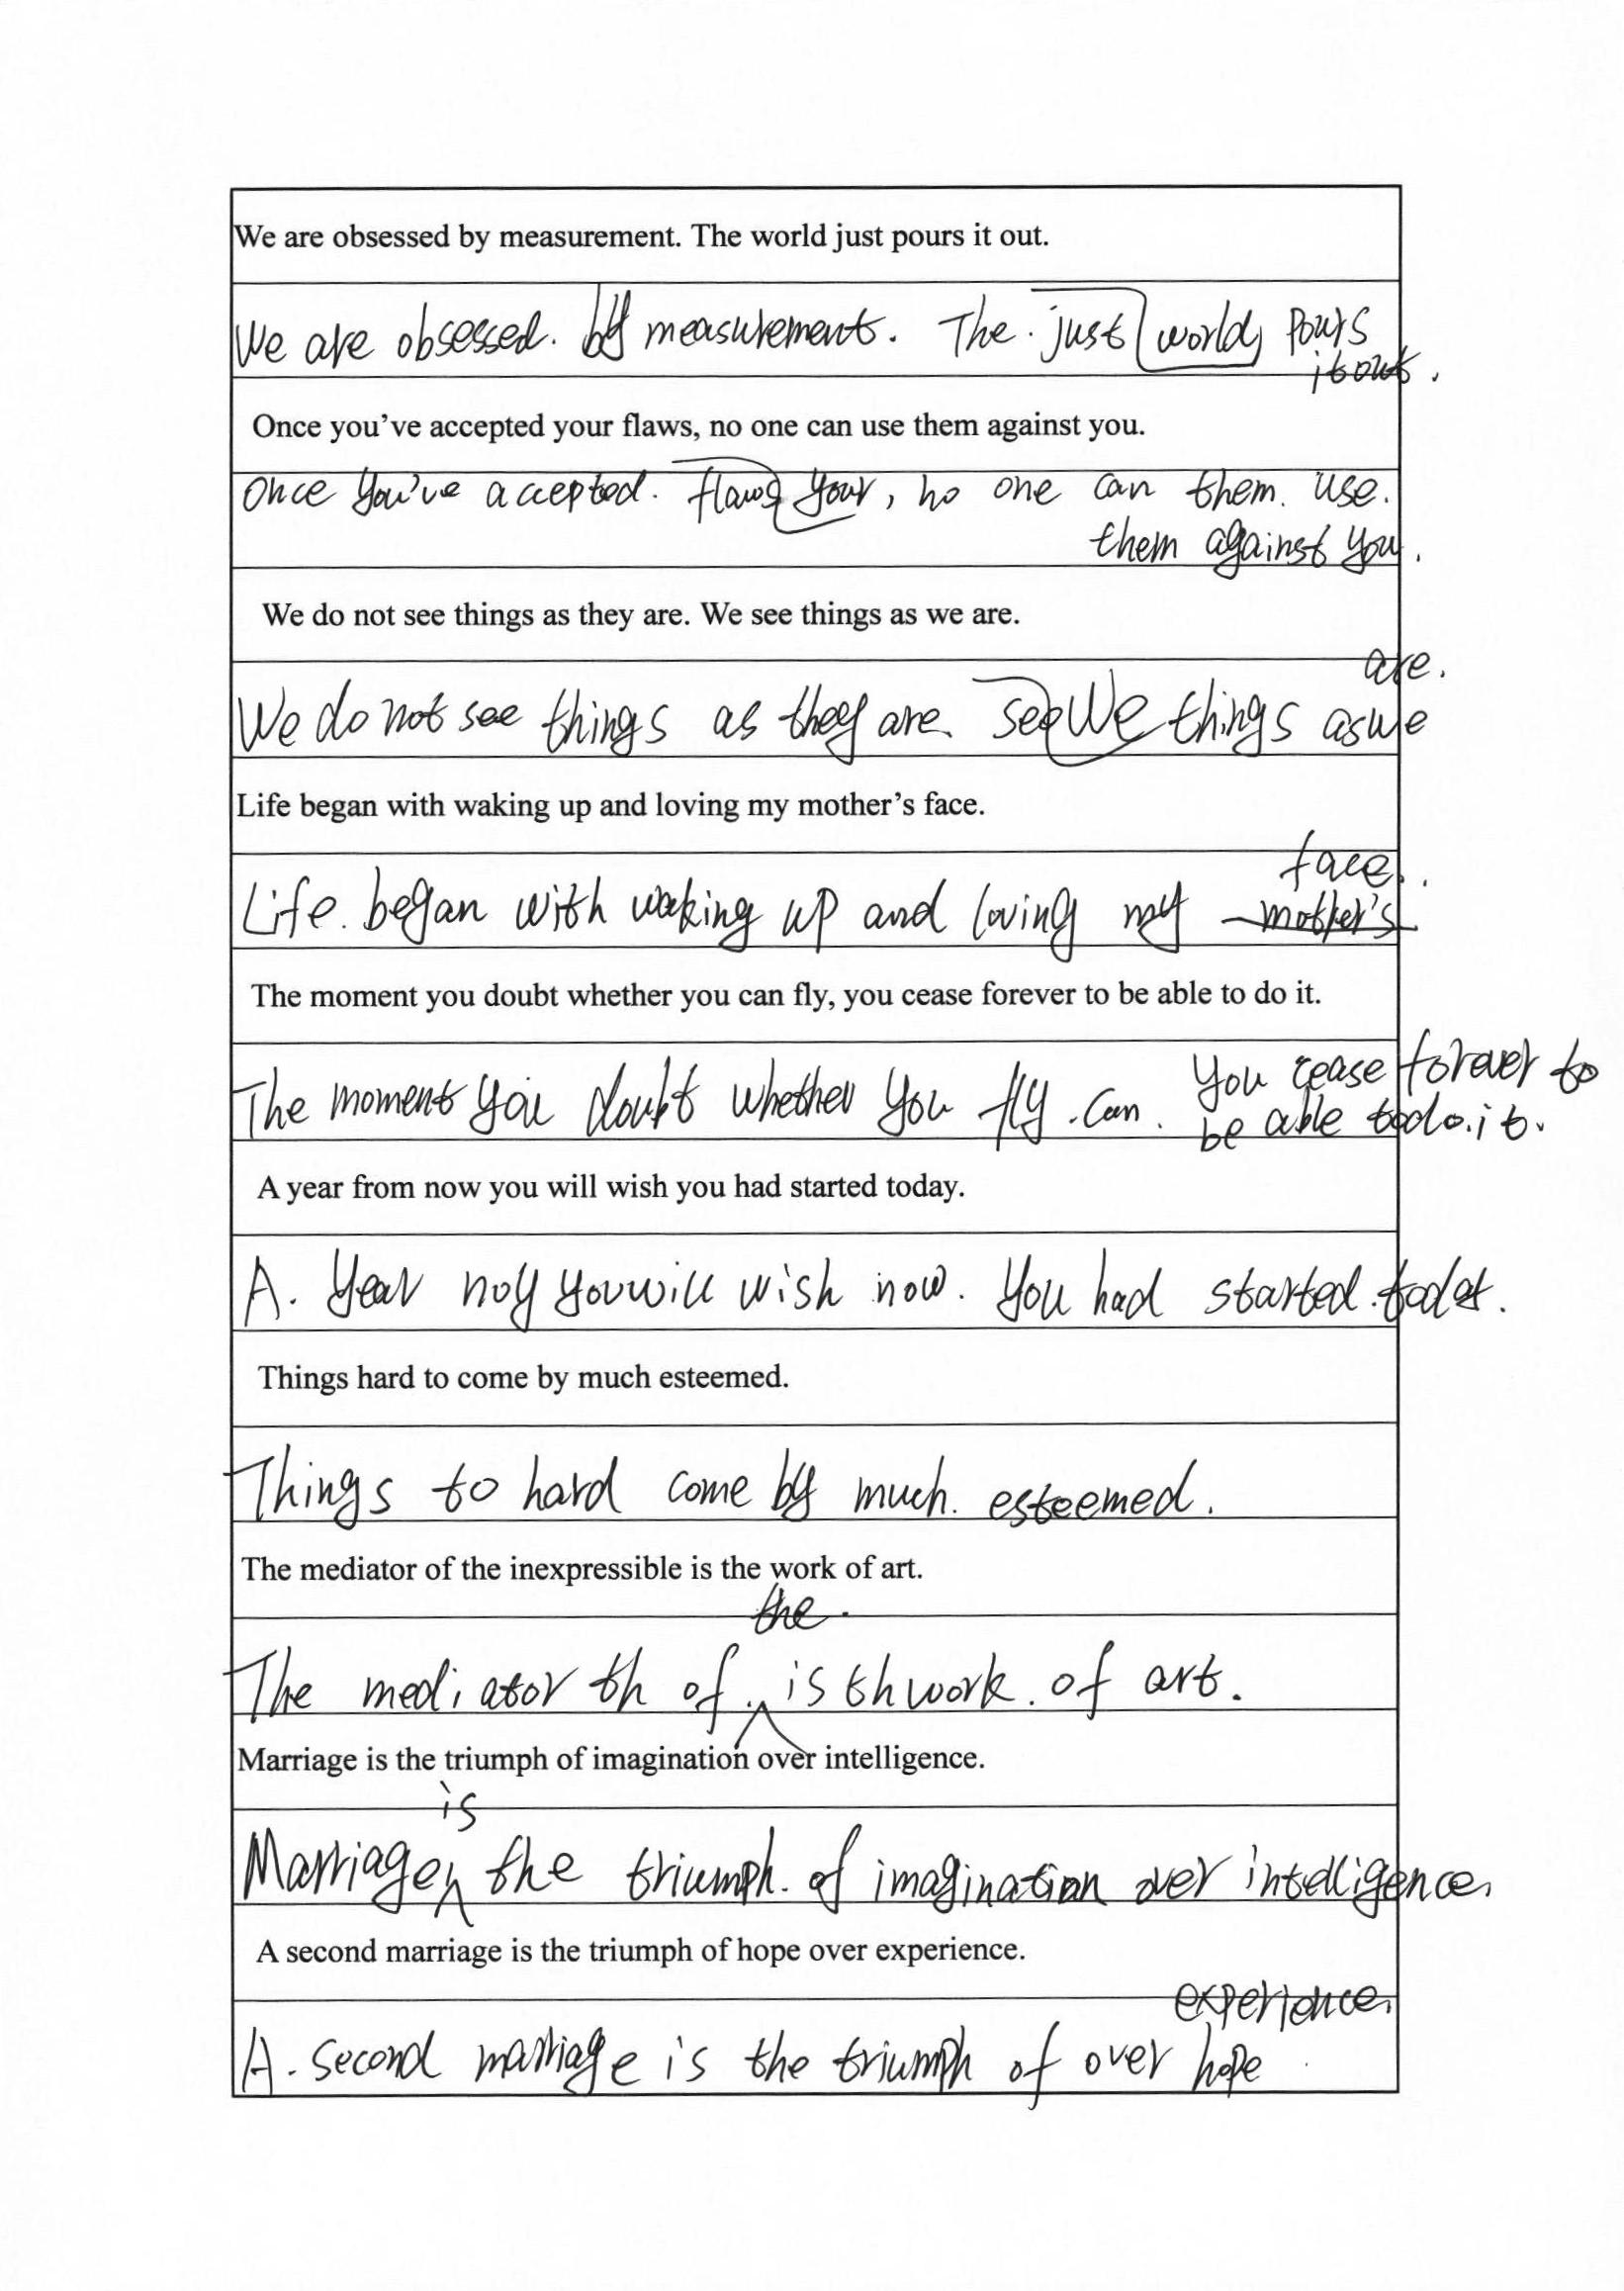 We are obsessed by measurement. The world just pours it out.
We are obsessed. by measurement. The. just world pours
it out.
Once you've accepted your flaws, no one can use them against you.
Once you've accepted. flaws your, no one can them. use.
them against you.
We do not see things as they are. We see things as we are.
are.
We do not see things as they are. see We things as we
Life began with waking up and loving my mother's face.
face.
Life. began with waking up and loving my mother's
The moment you doubt whether you can fly, you cease forever to be able to do it.
you cease forever to
The moment you doubt whether you fly. can.
be able to do. it.
A year from now you will wish you had started today.
A. year you will wish now. you had started.
Things hard to come by much esteemed.
Things to hard come by much. esteemed.
The mediator of the inexpressible is the work of art.
the.
The mediator th of is th work. of art.
Marriage is the triumph of imagination over intelligence.
is
Marriage the triumph. of imagination over intelligence.
A second marriage is the triumph of hope over experience.
experience.
A. second marriage is the triumph of over hope